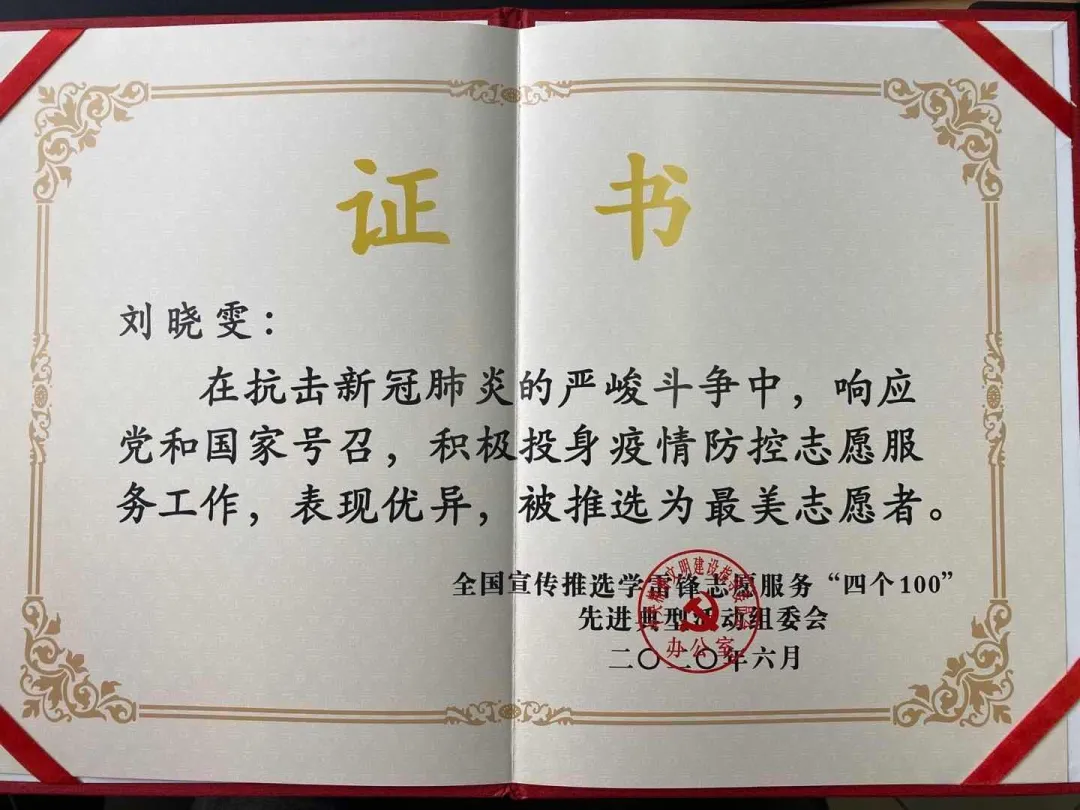 证书
刘晓雯：
在抗击新冠肺炎的严峻斗争中，响应
党和国家号召，积极投身疫情防控志愿服
务工作，表现优异，被推选为最美志愿者。
全国宣传推选学雷锋志愿服务“四个100”
先进典型活动组委会
二〇二〇年六月
文明建设指
办公室